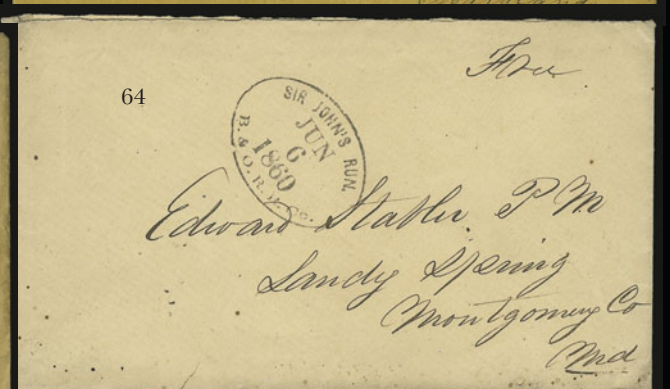 Free
64
SIR JOHN'S RUN.
JUN
6
1860
B. & O. R. R. Co.
Edward Stabler. P M
Sandy Spring
Montgomery Co
Md